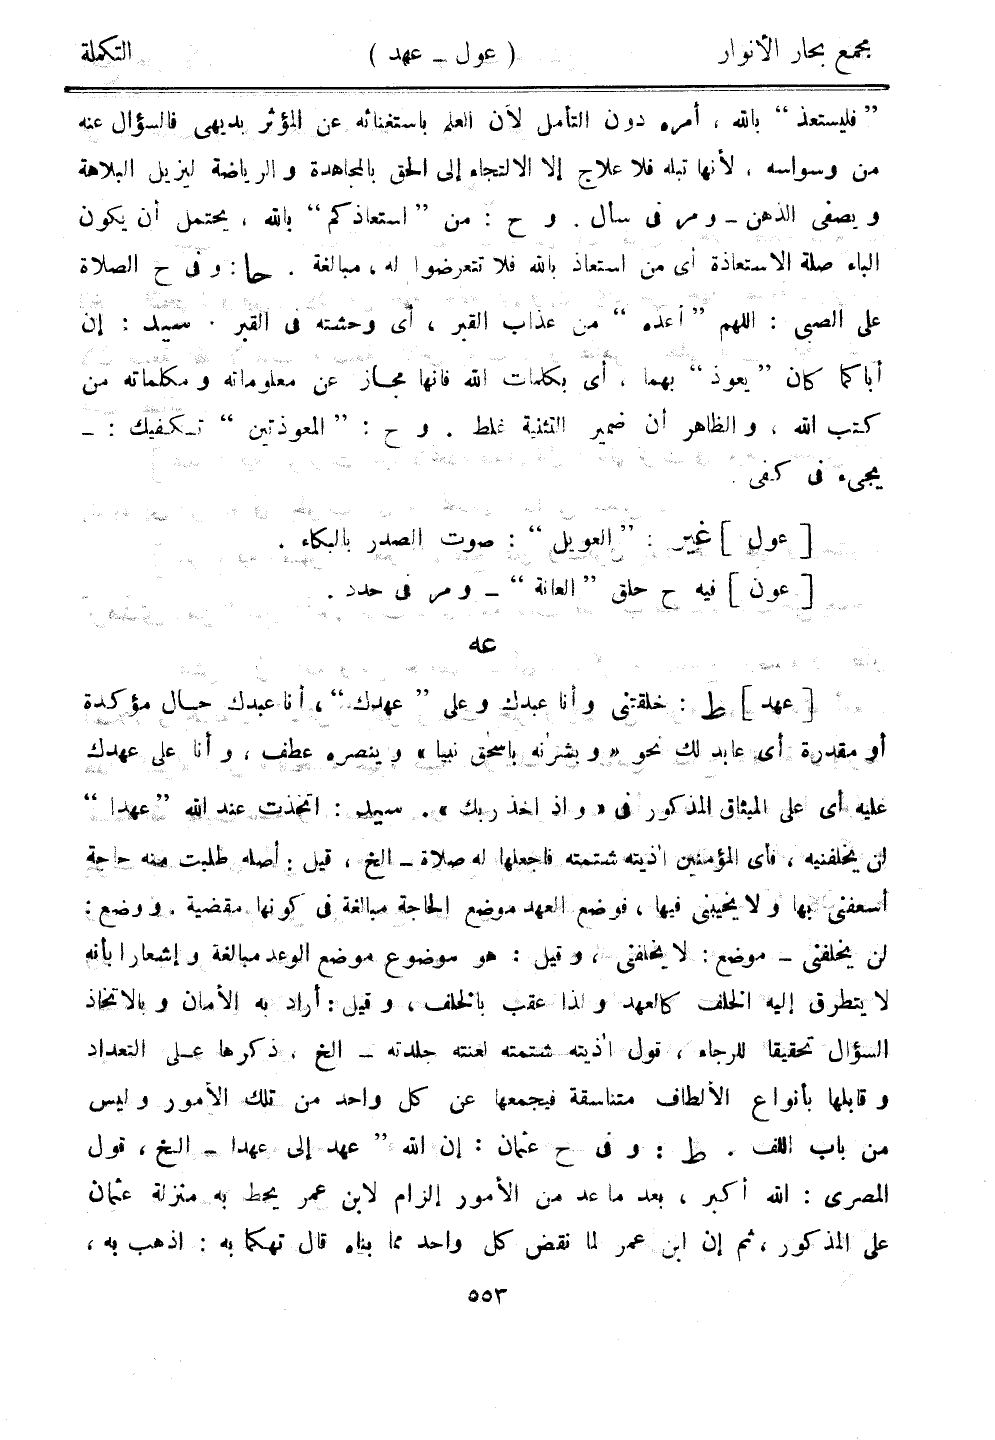 مجمع بحار الأنوار ( عول ــ عهد ) التكملة
”فليستعذ“ بالله ، أمره دون التأمل لأن العلم باستغنائه عن المؤثر بديهى فالسؤال عنه
من وسواسه ، لأنها تبله فلا علاج إلا الالتجاء إلى الحق بالمجاهدة و الرياضة ليزيل البلاهة
و يصفى الذهن ــ و مر فى سأل . و ح : من ”استعاذكم“ بالله ، يحتمل أن يكون
الباء صلة الاستعاذة أى من استعاذ بالله فلا تتعرضوا له ، مبالغة . حا : و فى ح الصلاة
على الصبى : اللهم ”أعذه“ من عذاب القبر ، أى وحشته فى القبر . سيد : إن
أباكما كان ”يعوذ“ بهما ، أى بكلمات الله فانها مجاز عن معلوماته و مكلماته من
كتب الله ، و الظاهر أن ضمير التثنية غلط . و ح : ”المعوذتين“ تكفيك : ــ
يجىء فى كفى .
[ عول ] غير : ”العويل“ : صوت الصدر بالبكاء .
[ عون ] فيه ح حلق ”العانة“ ــ و مر فى حدد .
عه
[ عهد ] ط : خلقتنى و أنا عبدك و على ”عهدك“ ، أنا عبدك حال مؤكدة
أو مقدرة أى عابد لك نحو « و بشرنه باسحٰق نبيا » و ينصره عطف ، و أنا على عهدك
عليه أى على الميثاق المذكور فى « و اذ اخذ ربك » . سيد : اتخذت عند الله ”عهدا“
لن يخلفنيه ، فأى المؤمنين اٰذيته شتمته فاجعلها له صلاة ــ الخ ، قيل : أصله طلبت منه حاجة
أسعفنى بها و لا يخيبنى فيها ، فوضع العهد موضع الحاجة مبالغة فى كونها مقضية . و وضع :
لن يخلفنى ــ موضع : لا يخلفنى ، و قيل : هو موضوع موضع الوعد مبالغة و إشعارا بأنه
لا يتطرق إليه الخلف كالعهد و لذا عقب بالخلف ، و قيل : أراد به الأمان و بالاتخاذ
السؤال تحقيقا للرجاء ، قول اٰذيته شتمته لعنته جلدته ــ الخ ، ذكرها على التعداد
و قابلها بأنواع الألطاف متناسقة فيجمعها عن كل واحد من تلك الأمور و ليس
من باب اللف . ط : و فى ح عثمان : إن الله ”عهد إلى عهدا ــ الخ ، قول
المصرى : الله أكبر ، بعد ما عد من الأمور إلزام لابن عمر يحط به منزلة عثمان
على المذكور ، ثم إن ابن عمر لما نقض كل واحد مما بناه قال تهكما به : اذهب به ،
٥٥٣